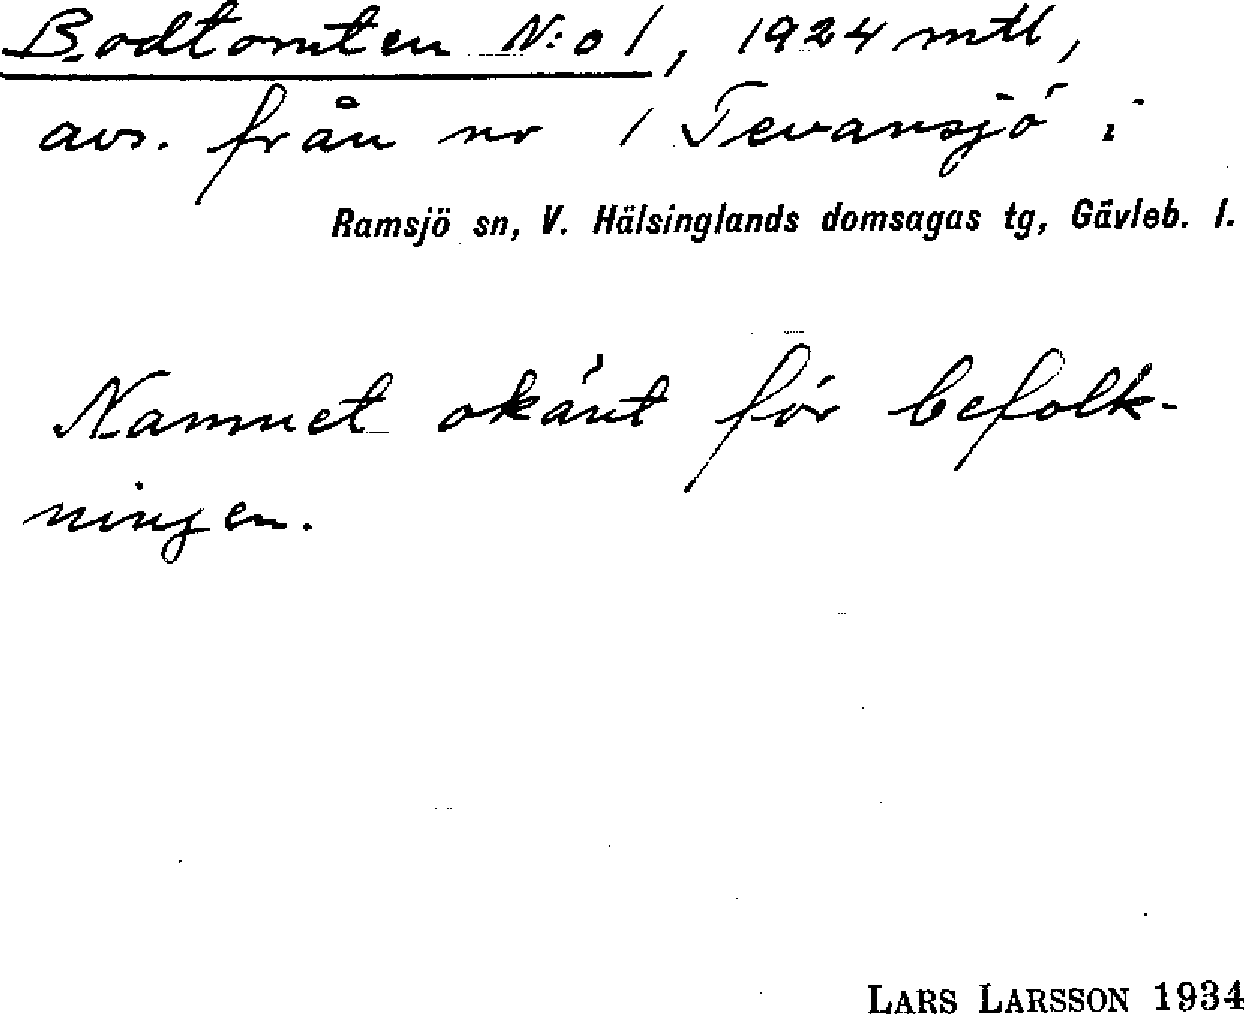 Bodtomten N:o 1, 1924 mtl,
avs. från nr 1 Tevansjö i
Ramsjö sn, V. Hälsinglands domsagas tg, Gävleb. l.
Namnet okänt för befolk-
ningen.
LARS LARSSON 1934